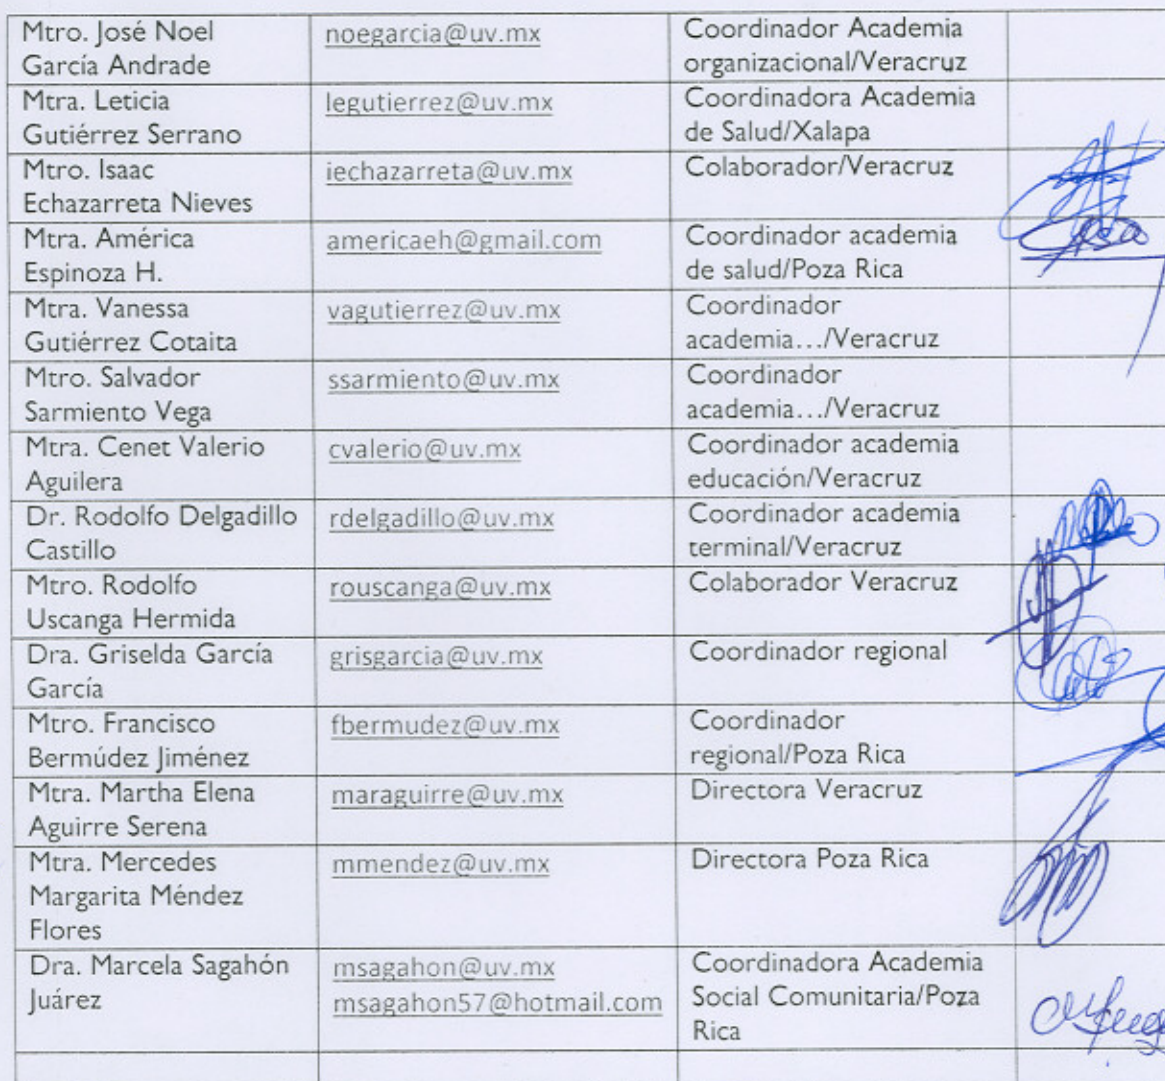 Mtro. José Noel
García Andrade
noegarcia@uv.mx
Coordinador Academia
organizacional/Veracruz
Mtra. Leticia
Gutiérrez Serrano
legutierrez@uv.mx
Coordinadora Academia
de Salud/Xalapa
Mtro. Isaac
Echazarreta Nieves
iechazarreta@uv.mx
Colaborador/Veracruz
Mtra. América
Espinoza H.
americaeh@gmail.com
Coordinador academia
de salud/Poza Rica
Mtra. Vanessa
Gutiérrez Cotaita
vagutierrez@uv.mx
Coordinador
academia…/Veracruz
Mtro. Salvador
Sarmiento Vega
ssarmiento@uv.mx
Coordinador
academia…/Veracruz
Mtra. Cenet Valerio
Aguilera
cvalerio@uv.mx
Coordinador academia
educación/Veracruz
Dr. Rodolfo Delgadillo
Castillo
rdelgadillo@uv.mx
Coordinador academia
terminal/Veracruz
Mtro. Rodolfo
Uscanga Hermida
rouscanga@uv.mx
Colaborador Veracruz
Dra. Griselda García
García
grisgarcia@uv.mx
Coordinador regional
Mtro. Francisco
Bermúdez Jiménez
fbermudez@uv.mx
Coordinador
regional/Poza Rica
Mtra. Martha Elena
Aguirre Serena
maraguirre@uv.mx
Directora Veracruz
Mtra. Mercedes
Margarita Méndez
Flores
mmendez@uv.mx
Directora Poza Rica
Dra. Marcela Sagahón
Juárez
msagahon@uv.mx
msagahon57@hotmail.com
Coordinadora Academia
Social Comunitaria/Poza
Rica